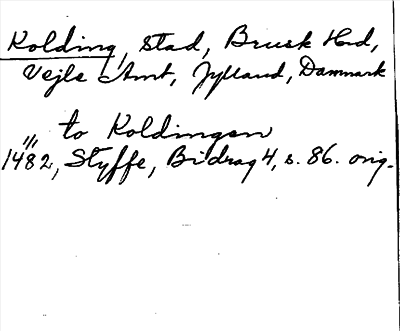 Kolding, stad, Brusk Hrd,
Vejle Amt, Jylland, Danmark
"to Koldingen"
1482, Styffe, Bidrag 4, s. 86. orig.